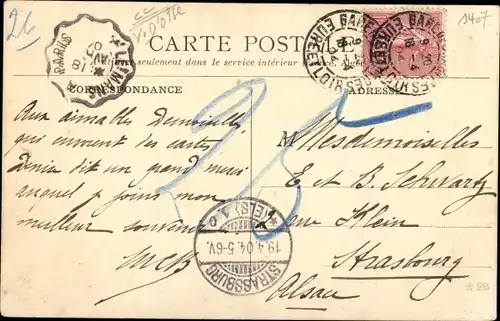 26
1407
CARTE POSTALE
seulement dans le service intérieur
CORRESPONDANCE
ADRESSE
PARIS
18
GARE
EURE
Aux aimables Demoiselles
qui envoient des cartes
Denise dit un grand merci
auquel je joins mon
meilleur souvenir
25
Mesdemoiselles
E et B. Schwartz
rue Klein
Strasbourg
Alsace
STRASSBURG
19.4.04.5-6V.
(ELS)